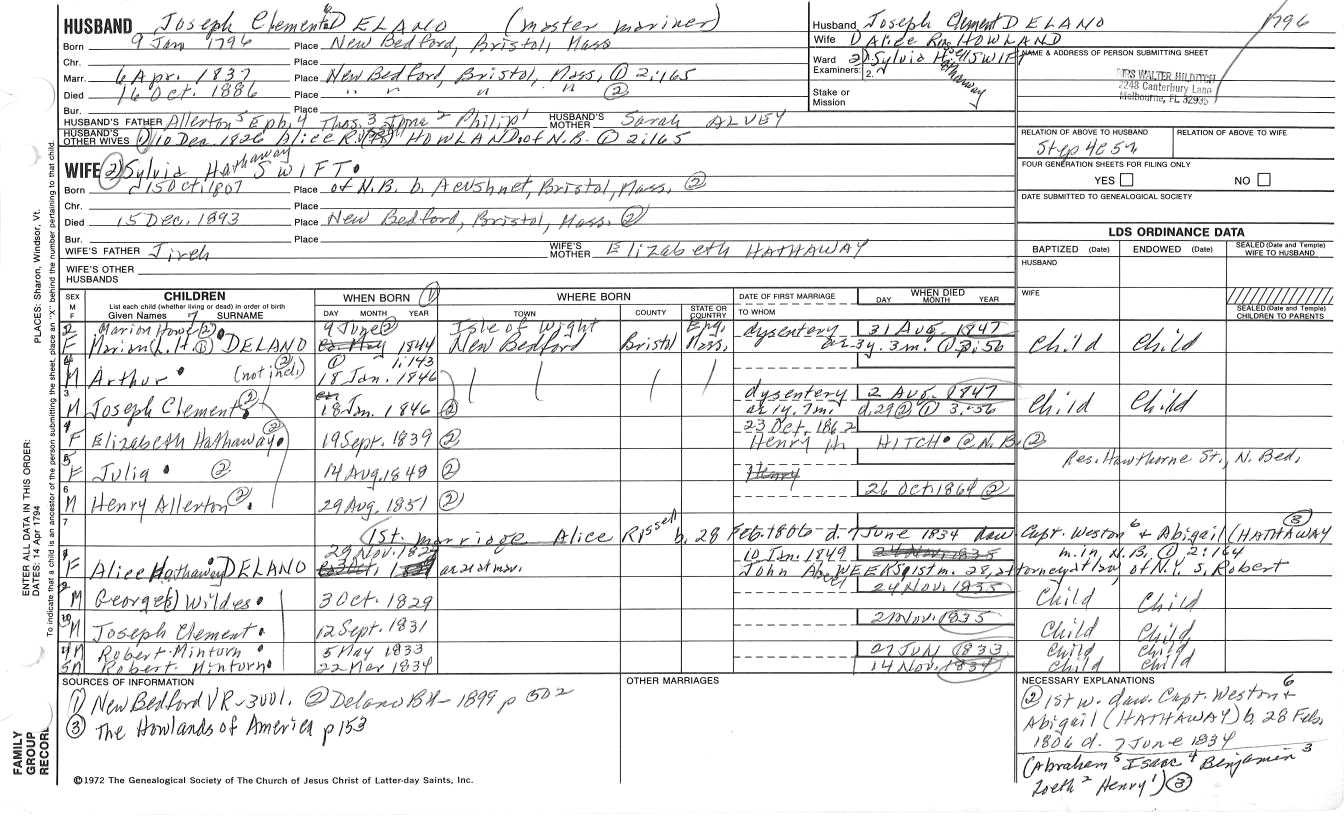 HUSBAND Joseph Clement 6 DELANO (master mariner)
Born 9 Jan 1796 Place New Bedford, Bristol, Mass
Chr. Place
Marr. 6 Apr. 1837 Place New Bedford, Bristol, Mass, ① 2:165
Died 16 Oct. 1886 Place " " " " ②
Bur. Place
HUSBAND'S FATHER Allerton 5 Eph. 4 Thos. 3 Jona 2 Philip 1 HUSBAND'S MOTHER Sarah ALVEY
HUSBAND'S OTHER WIVES ① 10 Dec. 1826 Alice R. HOWLAND of N.B. ① 2:165
WIFE ② Sylvia Hathaway SWIFT
Born 15 Oct. 1807 Place of N.B. b. Acushnet, Bristol, Mass, ②
Chr. Place
Died 15 Dec. 1893 Place New Bedford, Bristol, Mass. ②
Bur. Place
WIFE'S FATHER Jireh WIFE'S MOTHER Elizabeth HATHAWAY
WIFE'S OTHER HUSBANDS
Husband Joseph Clement DELANO 1796
Wife ① Alice HOWLAND
Ward Examiners: 1. 2. ② Sylvia Hathaway SWIFT
Stake or Mission
NAME & ADDRESS OF PERSON SUBMITTING SHEET
MRS WALTER
2243 Canterbury Lane
Melbourne, FL 32935
RELATION OF ABOVE TO HUSBAND RELATION OF ABOVE TO WIFE
FOUR GENERATION SHEETS FOR FILING ONLY
YES NO
DATE SUBMITTED TO GENEALOGICAL SOCIETY
LDS ORDINANCE DATA
BAPTIZED (Date) ENDOWED (Date) SEALED (Date and Temple) WIFE TO HUSBAND
HUSBAND
WIFE
SEALED (Date and Temple) CHILDREN TO PARENTS
SEX M F CHILDREN List each child (whether living or dead) in order of birth Given Names 7 SURNAME
WHEN BORN ① DAY MONTH YEAR
WHERE BORN TOWN COUNTY STATE OR COUNTRY
DATE OF FIRST MARRIAGE TO WHOM
WHEN DIED DAY MONTH YEAR
2 Marion Howe ② 9 June ② Isle of Wight Eng. dysentery 31 Aug. 1847
F Marion L. H. ① DELANO 1844 New Bedford Bristol Mass. ae 3y. 3m. ① 3:56 Child Child
① 1:143
M Arthur (not incl.) ② 18 Jan. 1846
3 dysentery 2 Aug. 1847
M Joseph Clement ② 18 Jan. 1846 ② ae 1y. 7m. d. 29 ② ① 3:56 Child Child
23 Oct. 1862
F Elizabeth Hathaway ② 19 Sept. 1839 ② Henry HITCH @ N.B. ②
5
F Julia ② 14 Aug. 1848 ② Henry Res. Hawthorne St., N. Bed.
6 26 Oct. 1864 ②
M Henry Allerton ② 29 Aug. 1851 ②
7 1st. marriage Alice Russell b. 28 Feb. 1806 d. 7 June 1834 dau Capt. Weston 6 & Abigail (HATHAWAY ③
29 Nov. 10 Jan. 1849 24 Nov. 1835 m. in N.B. ① 2:164
F Alice Hathaway DELANO ae 21 at mar. John WEEKS 1st m. 28, attorney at law of N.Y. s. Robert
M George Wildes 3 Oct. 1829 24 Nov. 1835 Child Child
M Joseph Clement 12 Sept. 1831 21 Nov. 1835 Child Child
4 M Robert Minturn 5 May 1833 27 JUN 1833 Child Child
5 M Robert Minturn 22 Mar 1834 14 Nov. 1834 Child Child
SOURCES OF INFORMATION
① New Bedford VR - 3001. ② Delano BK - 1899 p 502
③ The Howlands of America p 153
OTHER MARRIAGES
NECESSARY EXPLANATIONS
② 1st w. dau. Capt. Weston 6 &
Abigail (HATHAWAY) b. 28 Feb.
1806 d. 7 June 1834
(Abraham 5 Isaac 4 Benjamin 3
Zoeth 2 Henry 1) ③
©1972 The Genealogical Society of The Church of Jesus Christ of Latter-day Saints, Inc.
FAMILY GROUP RECORD
ENTER ALL DATA IN THIS ORDER:
DATES: 14 Apr 1794
PLACES: Sharon, Windsor, Vt.
To indicate that a child is an ancestor of the person submitting the sheet, place an "X" behind the number pertaining to that child.